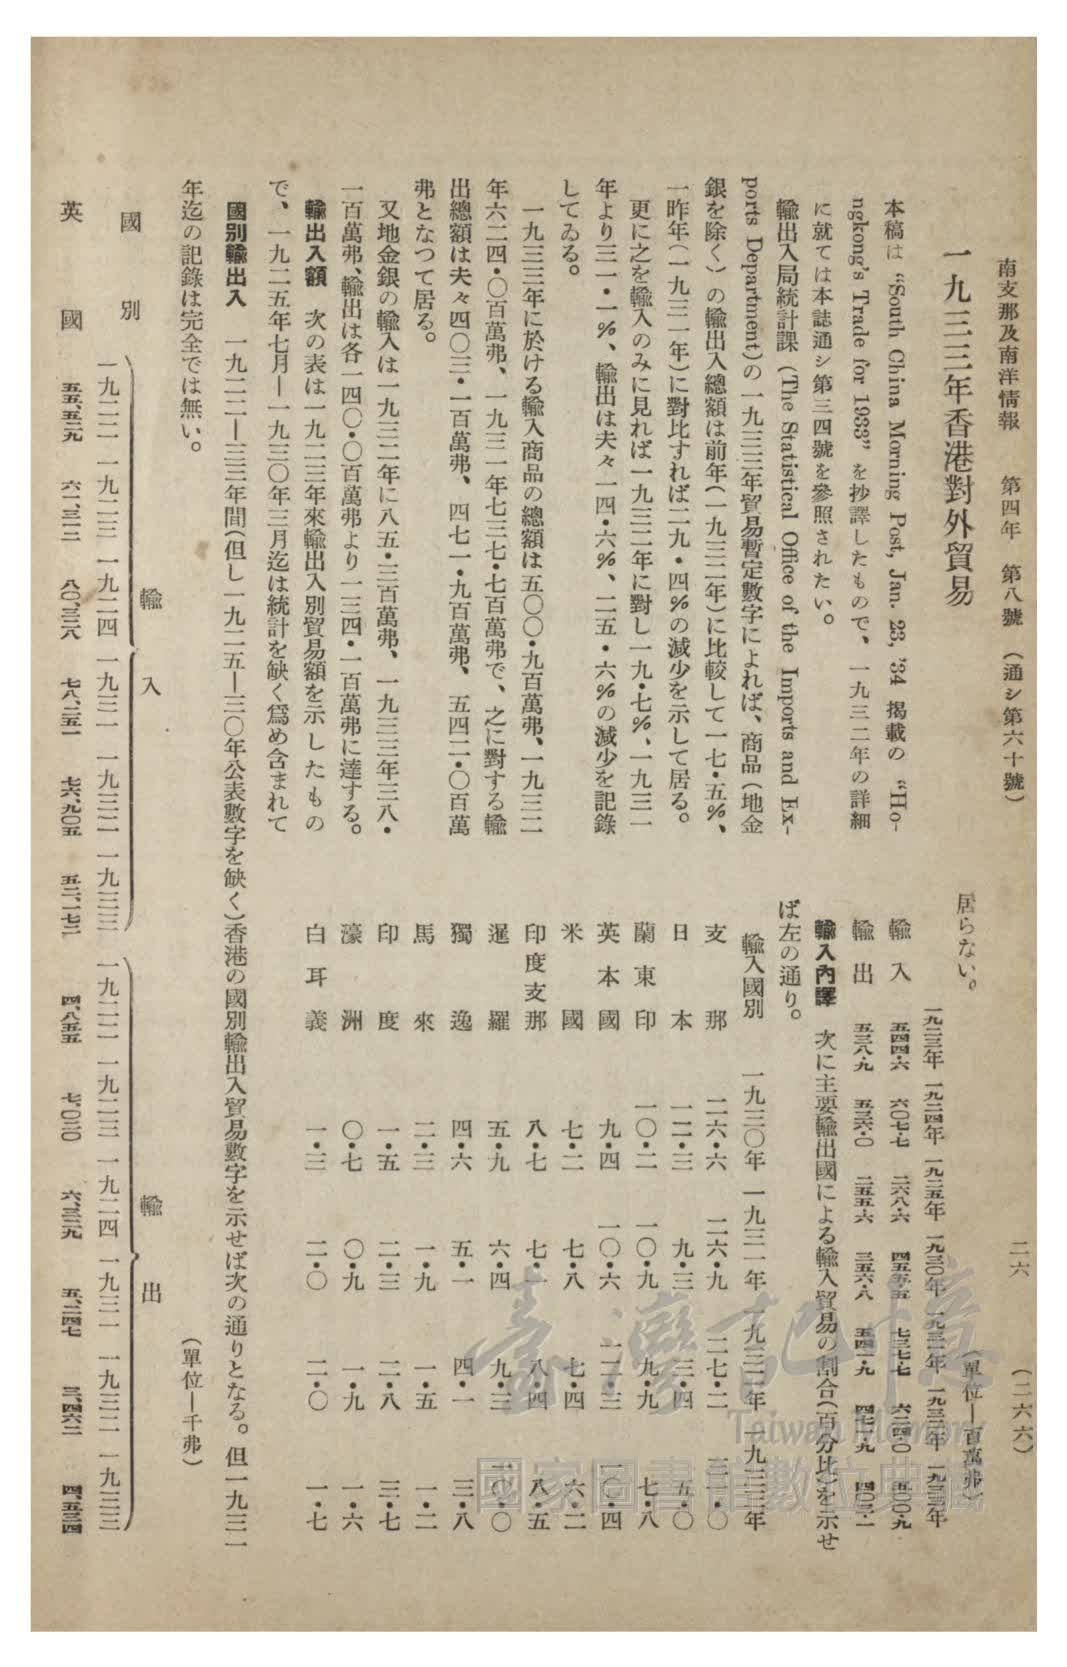 南支那及南洋情報　第四年　第八號　（通シ第六十號）　二六　（二六六）
一九三三年香港對外貿易
本稿は “South China Morning Post, Jan. 23, '34 揭載の “Ho-
ngkong's Trade for 1933” を抄譯したもので、一九三二年の詳細
に就ては本誌通シ第三四號を參照されたい。
輸出入局統計課 (The Statistical Office of the Imports and Ex-
ports Department)の一九三三年貿易暫定數字によれば、商品（地金
銀を除く）の輸出入總額は前年(一九三二年)に比較して一七・五%、
一昨年(一九三一年)に對比すれば二九・四%の減少を示して居る。
更に之を輸入のみに見れば一九三二年に對し一九・七%、一九三一
年より三一・一%、輸出は夫々一四・六%、二五・六%の減少を記錄
してゐる。
一九三三年に於ける輸入商品の總額は五〇〇・九百萬弗、一九三二
年六二四・〇百萬弗、一九三一年七三七・七百萬弗で、之に對する輸
出總額は夫々四〇三・一百萬弗、四七一・九百萬弗、五四二・〇百萬
弗となつて居る。
又地金銀の輸入は一九三二年に八五・三百萬弗、一九三三年三八・
一百萬弗、輸出は各一四〇・〇百萬弗より一三四・一百萬弗に達する。
輸出入額　次の表は一九二三年來輸出入別貿易額を示したもの
で、一九二五年七月—一九三〇年三月迄は統計を缺く爲め含まれて
居らない。
（單位—百萬弗）
一九二三年 一九二四年 一九二五年 一九三〇年 一九三一年 一九三二年 一九三三年
輸入 五四四・六 六〇七・七 二六八・六 四五五・五 七三七・七 六二四・〇 五〇〇・九
輸出 五三八・九 五三六・〇 二五五・六 三五六・八 五四一・九 四七一・九 四〇三・一
輸入內譯　次に主要輸出國による輸入貿易の割合(百分比)を示せ
ば左の通り。
輸入國別 一九三〇年 一九三一年 一九三二年 一九三三年
支那 二六・六 二六・九 二七・二 三一・〇
日本 一二・三 九・三 三・四 五・〇
蘭東印 一〇・二 一〇・九 九・九 七・八
英本國 九・四 一〇・六 一二・三 一〇・四
米國 七・二 七・八 七・四 六・二
印度支那 八・七 七・一 八・四 八・五
暹羅 五・九 六・四 九・三 一〇・〇
獨逸 四・六 五・一 四・一 三・八
馬來 二・三 一・九 一・五 一・二
印度 一・五 二・三 二・八 三・七
濠洲 〇・七 〇・九 一・九 一・六
白耳義 一・三 二・〇 二・〇 一・七
國別輸出入　一九二二—三三年間(但し一九二五—三〇年公表數字を缺く)香港の國別輸出入貿易數字を示せば次の通りとなる。但一九三一
年迄の記錄は完全では無い。
（單位—千弗）
國別 輸入 輸出
一九二二 一九二三 一九二四 一九三一 一九三二 一九三三 一九二二 一九二三 一九二四 一九三一 一九三二 一九三三
英國 五五、五二九 六一、三二二 八〇、三二八 七八、二五一 七六、九〇五 五二、一七二 四、八五五 七、〇二〇 六、三二九 五、二四七 三、四六二 四、五三四
臺灣記憶
Taiwan Memory
國家圖書館數位典藏